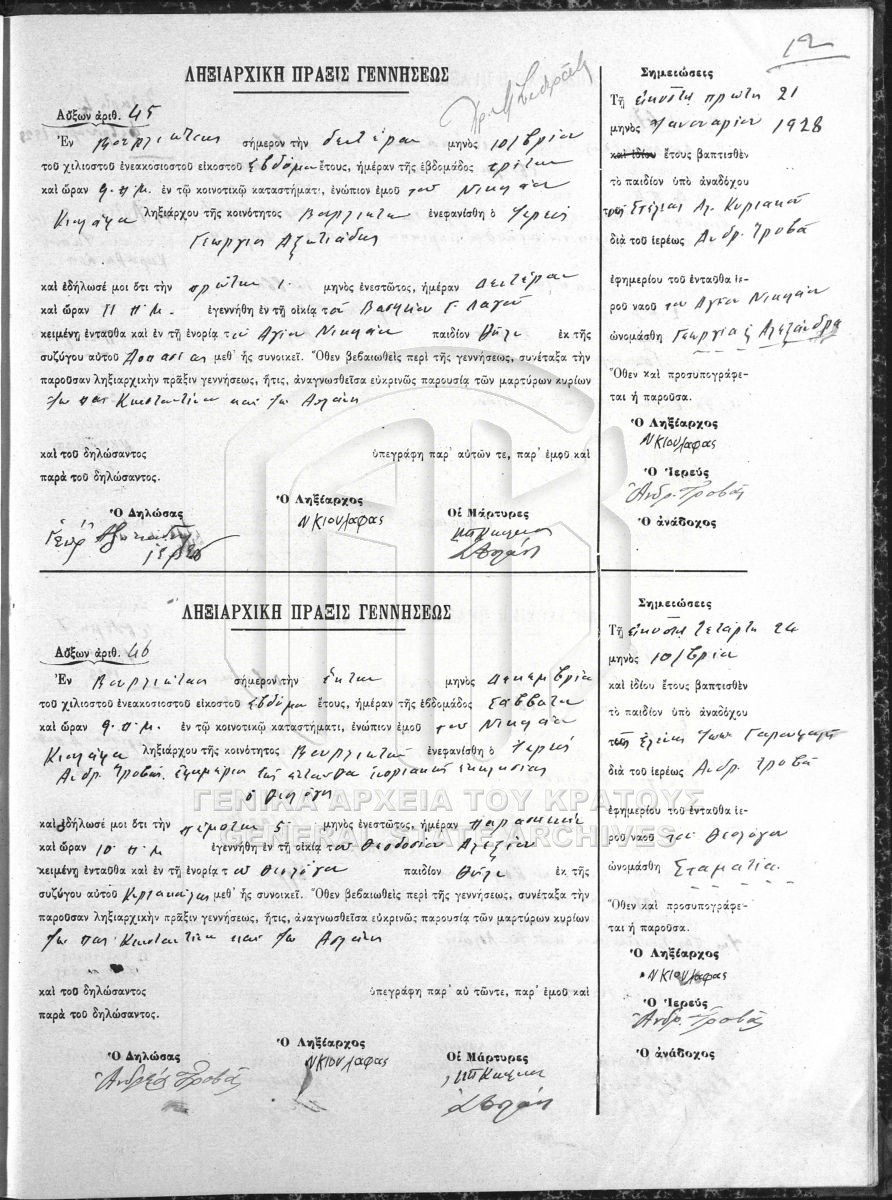 12
ΛΗΞΙΑΡΧΙΚΗ ΠΡΑΞΙΣ ΓΕΝΝΗΣΕΩΣ
Αὔξων ἀριθ. 45
Ἐν σήμερον τὴν δευτέραν μηνὸς 10/βρίου
τοῦ χιλιοστοῦ ἐνεακοσιοστοῦ εἰκοστοῦ ἑβδόμου ἔτους, ἡμέραν τῆς ἑβδομάδος
καὶ ὥραν 9 π.μ. ἐν τῷ κοινοτικῷ καταστήματι, ἐνώπιον ἐμοῦ τοῦ Νικολάου
Κιουλάφα ληξιάρχου τῆς κοινότητος ἐνεφανίσθη ὁ Ἱερεύς
Γεώργιος
καὶ ἐδήλωσέ μοι ὅτι τὴν πρώτην 1 μηνὸς ἐνεστῶτος, ἡμέραν Δευτέραν
καὶ ὥραν π.μ. ἐγεννήθη ἐν τῇ οἰκίᾳ τοῦ Βασιλείου Γ. Λαγοῦ
κειμένῃ ἐνταῦθα καὶ ἐν τῇ ἐνορίᾳ τοῦ Ἁγίου Νικολάου παιδίον θῆλυ ἐκ τῆς
συζύγου αὐτοῦ Ἀσπασίας μεθ' ἧς συνοικεῖ. Ὅθεν βεβαιωθεὶς περὶ τῆς γεννήσεως, συνέταξα τὴν
παροῦσαν ληξιαρχικὴν πρᾶξιν γεννήσεως, ἥτις, ἀναγνωσθεῖσα εὐκρινῶς παρουσίᾳ τῶν μαρτύρων κυρίων
Κωνσταντίνου καὶ Ἰω
καὶ τοῦ δηλώσαντος ὑπεγράφη παρ' αὐτῶν τε, παρ' ἐμοῦ καὶ
παρὰ τοῦ δηλώσαντος.
Ὁ Δηλώσας Ὁ Ληξίαρχος Οἱ Μάρτυρες
Νκιουλαφας
Σημειώσεις
Τῇ εἰκοστῇ πρώτῃ 21
μηνὸς Ἰανουαρίου 1928
καὶ ἰδίου ἔτους βαπτισθὲν
τὸ παιδίον ὑπὸ ἀναδόχου
Κυριακοῦ
διὰ τοῦ ἱερέως Ἀνδρ. Τροβᾶ
ἐφημερίου τοῦ ἐνταῦθα ἱε-
ροῦ ναοῦ τοῦ Ἁγίου Νικολάου
ὠνομάσθη Γεωργία ἢ Ἀλεξάνδρα
Ὅθεν καὶ προσυπογράφε-
ται ἡ παροῦσα.
Ὁ Ληξίαρχος
Νκιουλαφας
Ὁ Ἱερεὺς
Ἀνδρ. Τροβᾶς
Ὁ ἀνάδοχος
ΛΗΞΙΑΡΧΙΚΗ ΠΡΑΞΙΣ ΓΕΝΝΗΣΕΩΣ
Αὔξων ἀριθ. 46
Ἐν σήμερον τὴν ἕκτην μηνὸς Δεκεμβρίου
τοῦ χιλιοστοῦ ἐνεακοσιοστοῦ εἰκοστοῦ ἑβδόμου ἔτους, ἡμέραν τῆς ἑβδομάδος Σάββατον
καὶ ὥραν 9 π.μ. ἐν τῷ κοινοτικῷ καταστήματι, ἐνώπιον ἐμοῦ τοῦ Νικολάου
Κιουλάφα ληξιάρχου τῆς κοινότητος ἐνεφανίσθη ὁ Ἱερεύς
Ἀνδρ. Τροβᾶς ἐφημέριος τῆς ἐνταῦθα ἐκκλησίας
ὁ Θεολόγος
καὶ ἐδήλωσέ μοι ὅτι τὴν πέμπτην 5 μηνὸς ἐνεστῶτος, ἡμέραν Παρασκευὴν
καὶ ὥραν 10 π.μ ἐγεννήθη ἐν τῇ οἰκίᾳ τοῦ Θεοδοσίου Ἀλεξίου
κειμένῃ ἐνταῦθα καὶ ἐν τῇ ἐνορίᾳ τοῦ Θεολόγου παιδίον θῆλυ ἐκ τῆς
συζύγου αὐτοῦ μεθ' ἧς συνοικεῖ. Ὅθεν βεβαιωθεὶς περὶ τῆς γεννήσεως, συνέταξα τὴν
παροῦσαν ληξιαρχικὴν πρᾶξιν γεννήσεως, ἥτις, ἀναγνωσθεῖσα εὐκρινῶς παρουσίᾳ τῶν μαρτύρων κυρίων
Κωνσταντίνου καὶ Ἰω
καὶ τοῦ δηλώσαντος ὑπεγράφη παρ' αὐ τῶντε, παρ' ἐμοῦ καὶ
παρὰ τοῦ δηλώσαντος.
Ὁ Δηλώσας Ὁ Ληξίαρχος Οἱ Μάρτυρες
Ἀνδρέας Τροβᾶς Νκιουλαφας
Σημειώσεις
Τῇ εἰκοστῇ τετάρτῃ 24
μηνὸς 10/βρίου
καὶ ἰδίου ἔτους βαπτισθὲν
τὸ παιδίον ὑπὸ ἀναδόχου
Ἑλένης
διὰ τοῦ ἱερέως Ἀνδρ. Τροβᾶ
ἐφημερίου τοῦ ἐνταῦθα ἱε-
ροῦ ναοῦ τοῦ Θεολόγου
ὠνομάσθη Σταματία
Ὅθεν καὶ προσυπογράφε-
ται ἡ παροῦσα.
Ὁ Ληξίαρχος
Νκιουλαφας
Ὁ Ἱερεὺς
Ἀνδρ. Τροβᾶς
Ὁ ἀνάδοχος
ΓΕΝΙΚΑ ΑΡΧΕΙΑ ΤΟΥ ΚΡΑΤΟΥΣ
GENERAL STATE ARCHIVES